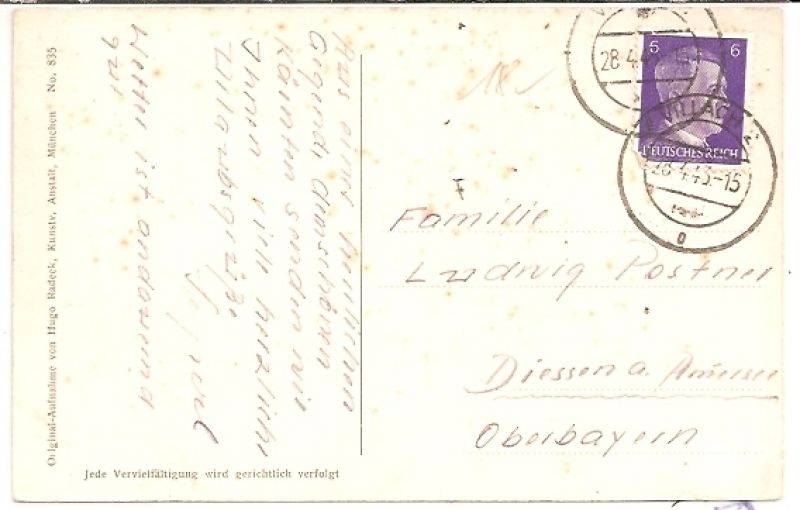 Original-Aufnahme von Hugo Radeck, Kunstv. Anstalt, München No. 835
Aus einer herrlichen
Gegend, dem schönen
Kärnten senden wir
Ihnen viele herzliche
Urlaubsgrüße
Wetter ist andauernd
gut
Jede Vervielfältigung wird gerichtlich verfolgt
5 6
DEUTSCHES REICH
28 4 43
VILLACH 2
28.4.43.-15
Familie
Ludwig Postner
Diessen a. Ammersee
Oberbayern